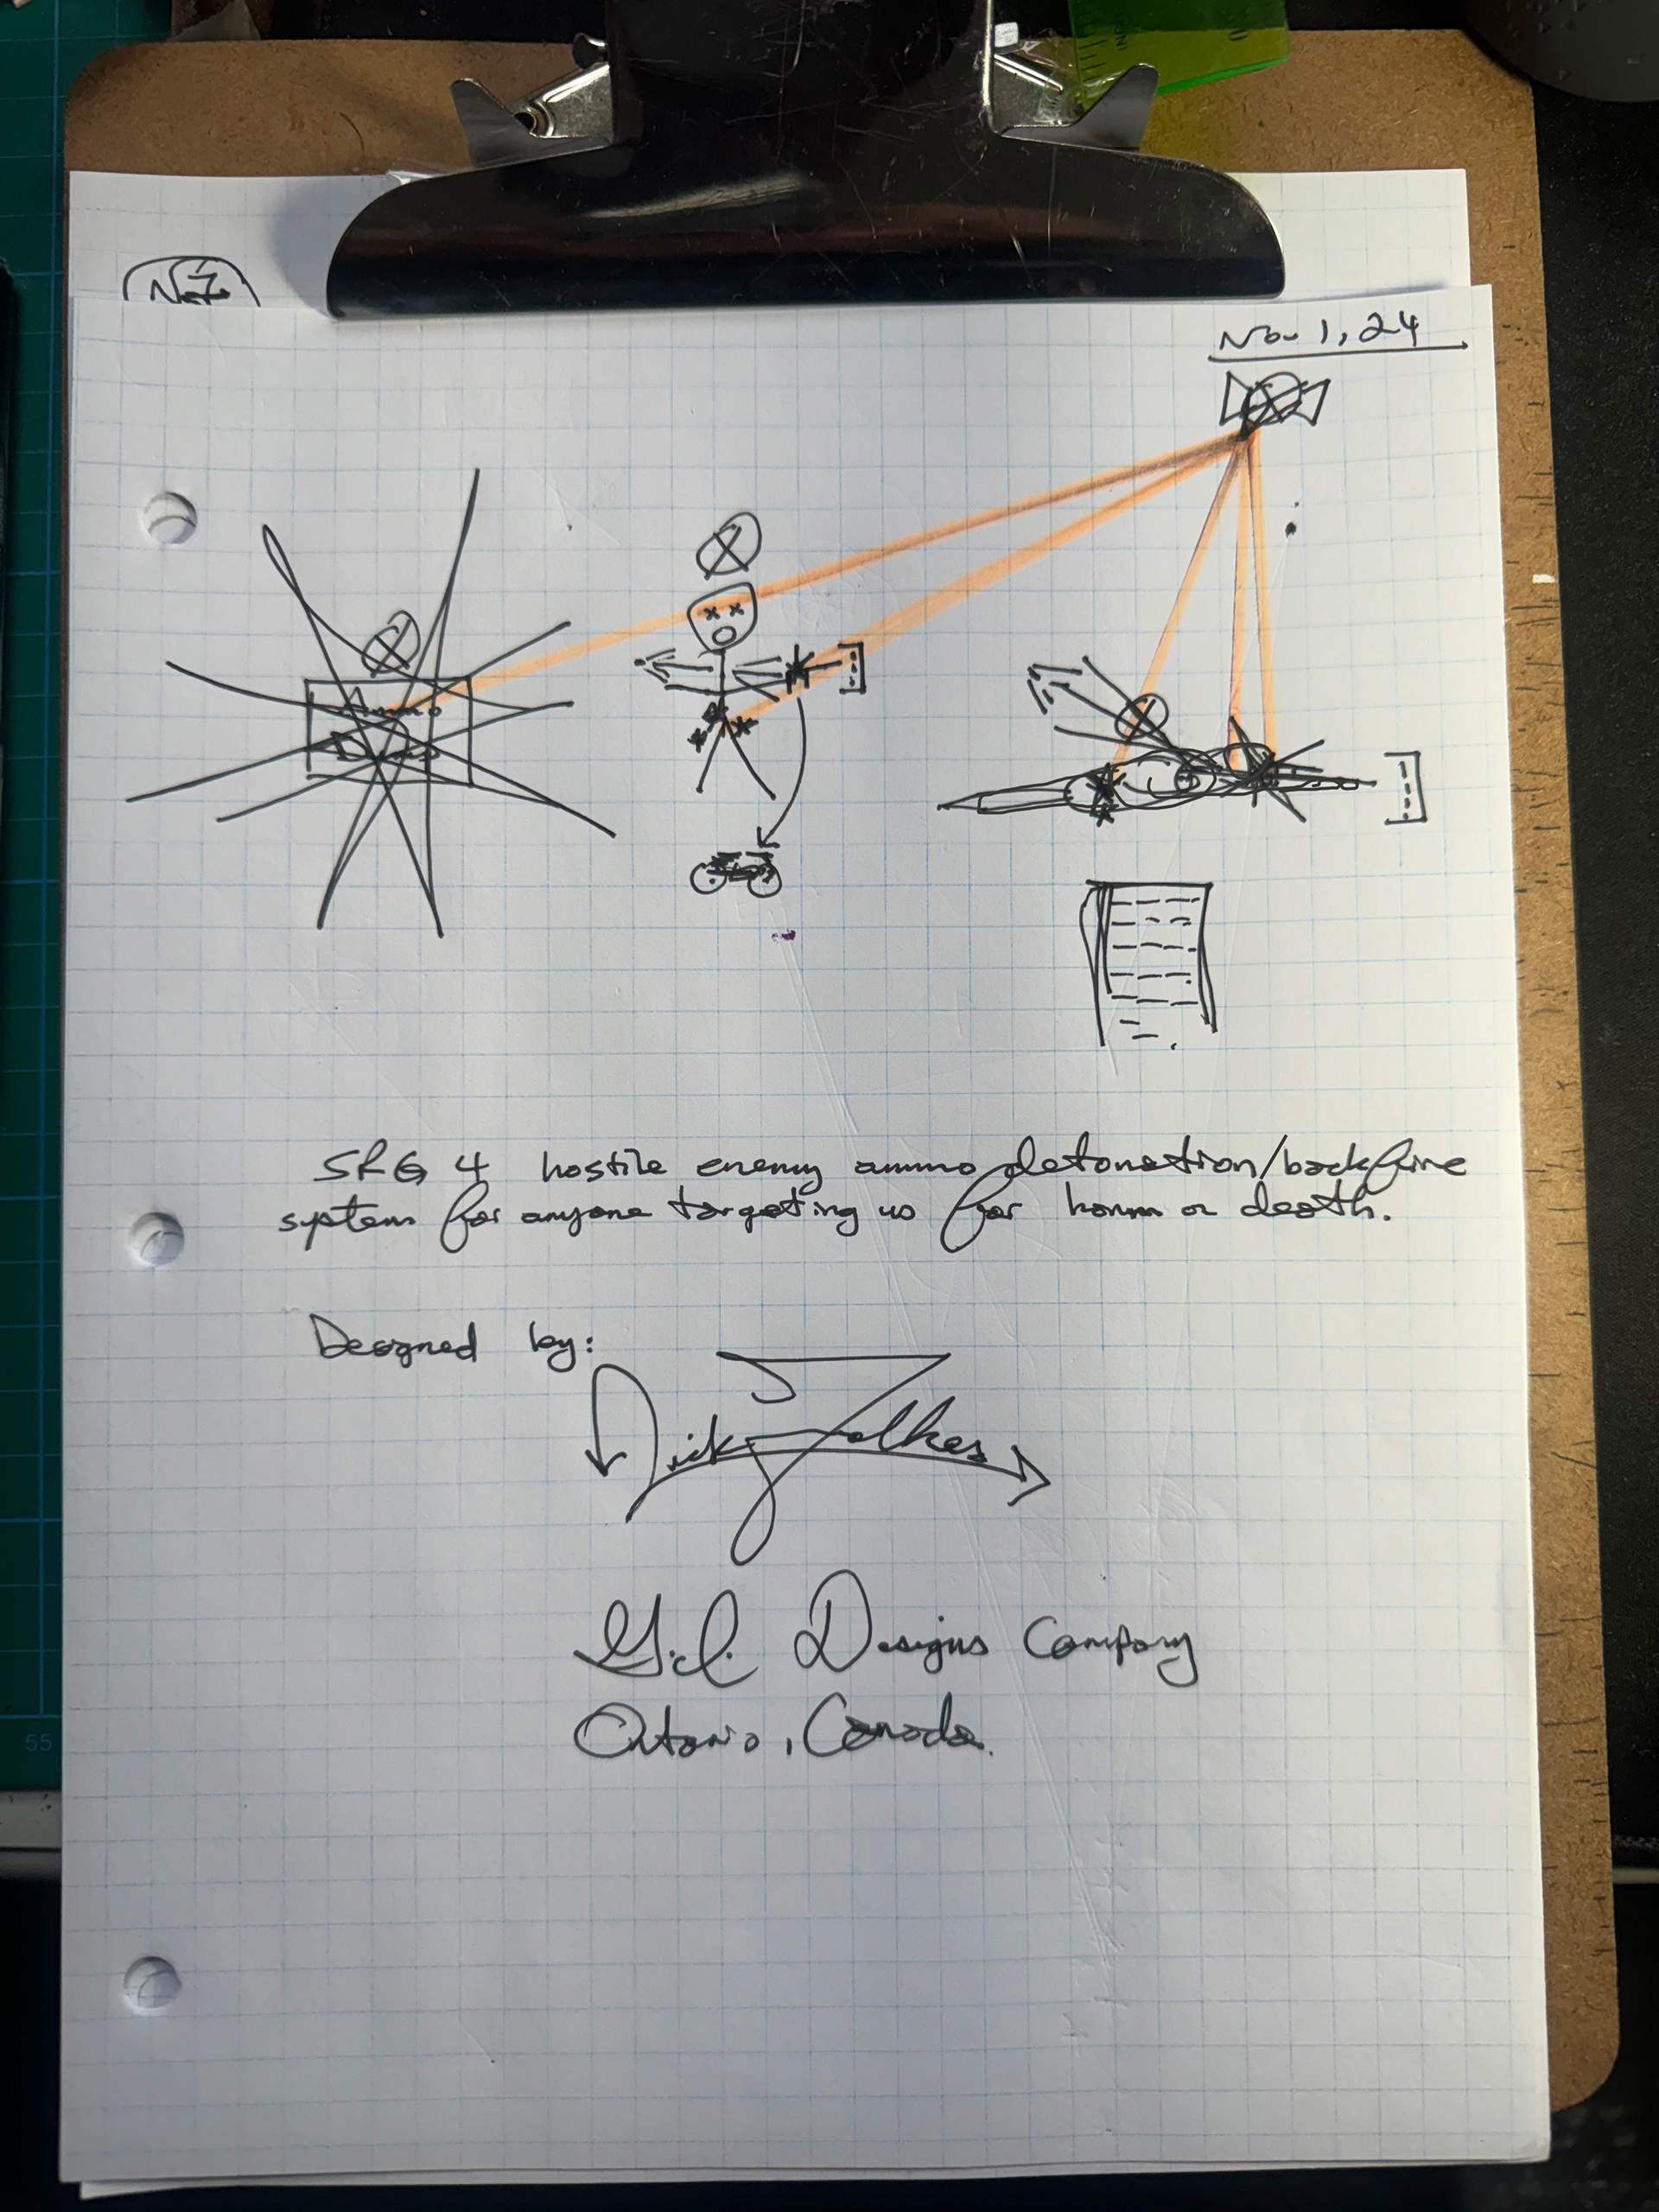 Nov 1, 24
Ammo
SRG 4 hostile enemy ammo detonation/backfire
system for anyone targeting us for harm or death.
Designed by:
Nick Folkes
G.I. Designs Company
Ontario, Canada.
55